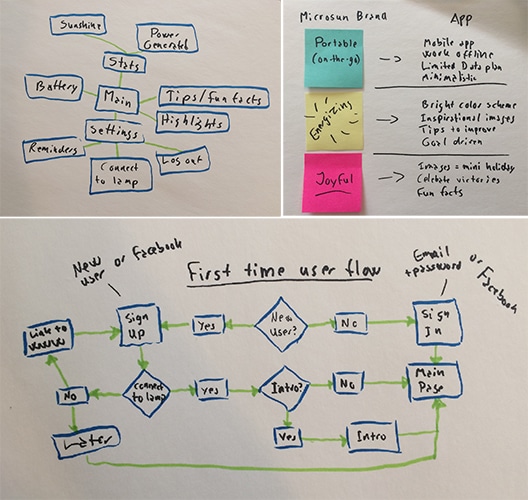 Sunshine
Power
Generated
Stats
Battery
Main
Tips/fun facts
Highlights
Settings
Reminders
Connect
to lamp
Log out
Microsun Brand
App
Portable
(on-the-go)
Mobile app
Work offline
Limited Data plan
Minimalistic
Energizing
Bright color scheme
Inspirational images
Tips to improve
Goal driven
Joyful
Images = mini holiday
Celebate victories
Fun facts
First time user flow
New
user or Facebook
Email
+password or Facebook
Link to
www
Sign
Up
Yes
New
User?
No
Sign
In
No
Connect
to lamp
yes
Intro?
No
Main
Page
Later
Yes
Intro